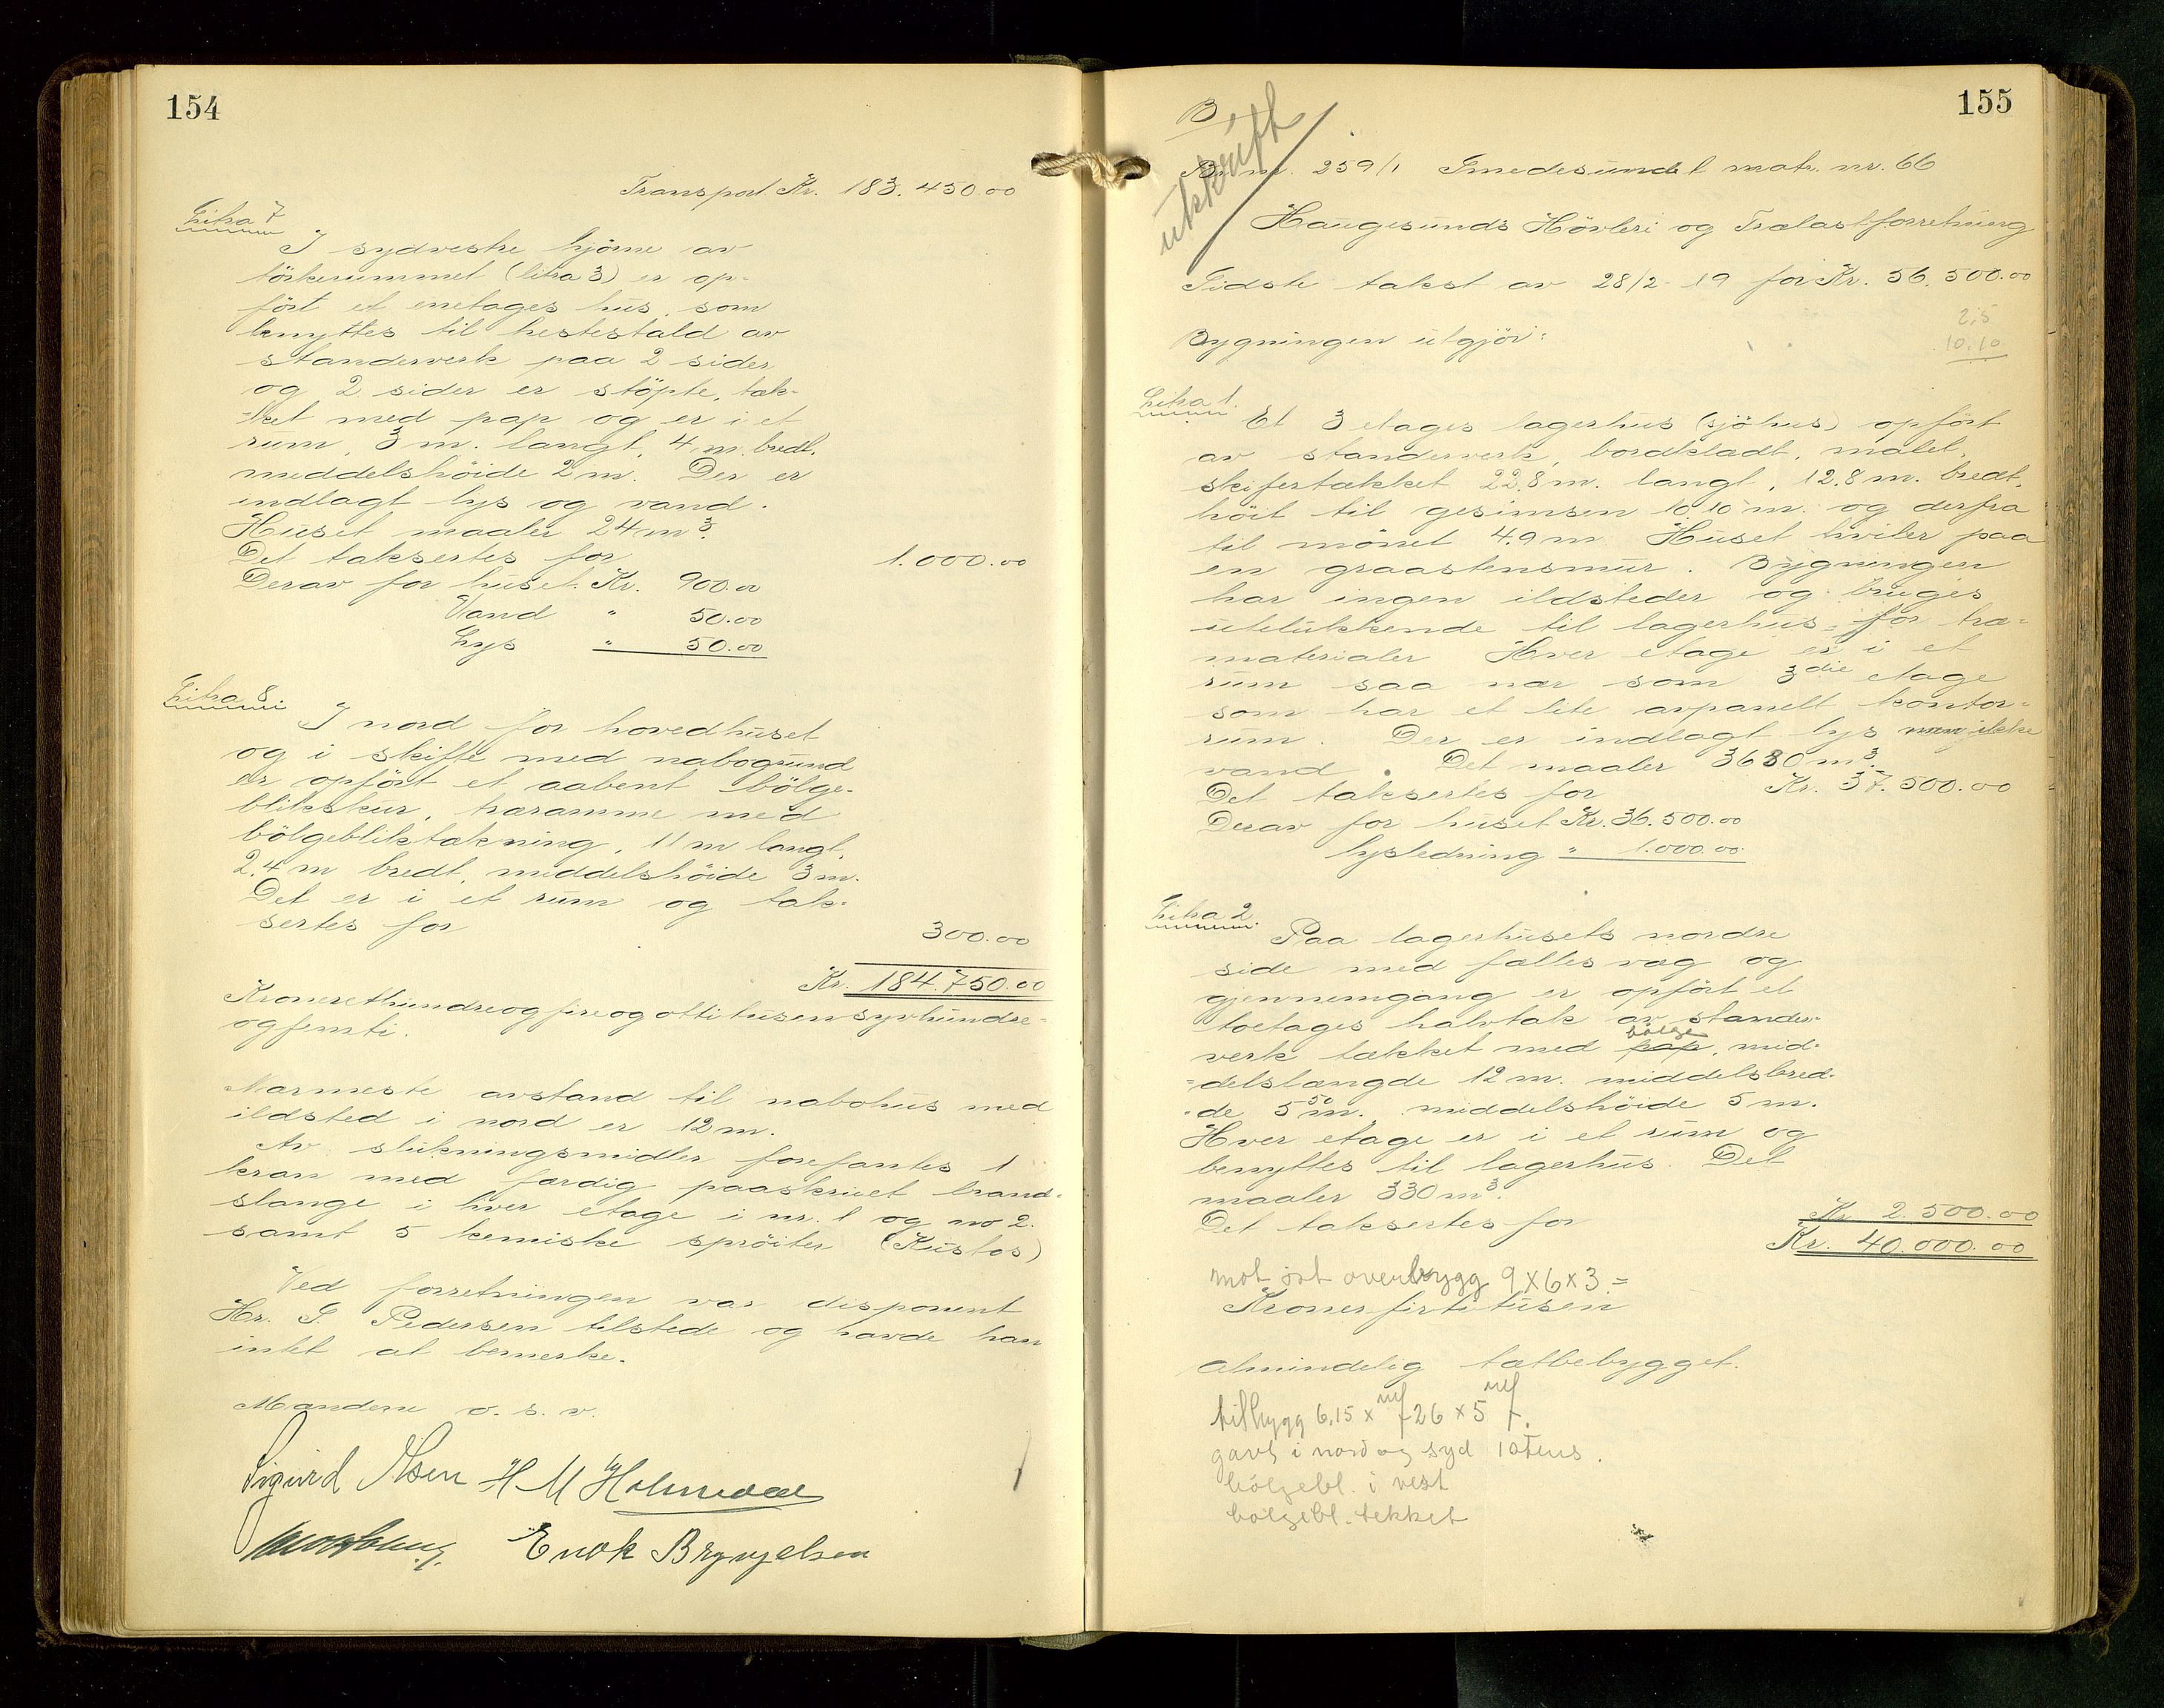 154
Transport Kr. 183.450.00
Litra 7
I sydvestre hjörne av
törkerummet (litra 3) er op-
fört et enetages hus, som
benyttes til hestestald av
standerverk paa 2 sider
og 2 sider er stöpte, tæk-
ket med pap og er i et
rum, 3 m. langt, 4 m. bredt,
middelshöide 2 m. Der er
indlagt lys og vand.
Huset maaler 24 m³.
Det taksertes for 1.000.00
Derav for huset Kr. 900.00
Vand " 50.00
Lys " 50.00
Litra 8.
I nord for hovedhuset
og i skifte med nabogrund
er opfört et aabent bölge-
blikskur, træramme med
bölgebliktækning, 11 m langt,
2.4 m bredt, middelshöide 3 m.
Det er i et rum og tak-
sertes for 300.00
Kr. 184.750.00
Kroneretthundreogfireogottitusensyvhundre-
ogfemti.
Nærmeste avstand til nabohus med
ildsted i nord er 12 m.
Av slukningsmidler forefantes 1
kran med færdig paaskruet brand-
slange i hver etage i nr. 1 og no 2.
samt 5 kemiske spröiter (Kustos)
Ved forretningen var disponent
Hr. S. Pedersen tilstede og havde han
intet at bemerke.
Mændene o. s. v.
Sigurd
H M Holmedal
Enok Bryngelsen
155
B
utskrift
Br. nr. 259/1 Smedesundet matr. nr. 66
Haugesunds Hövleri og Trælastforretning
Sidste takst av 28/2-19 for Kr. 56.500.00
2,5
10.10
Bygningen utgjör:
Litra 1.
Et 3 etages lagerhus (sjöhus) opfört
av standerverk, bordklædt, malet,
skifertækket 22.8 m. langt, 12.8 m. bredt,
höit til gesimsen 10.10 m. og derfra
til mönet 4.9 m. Huset hviler paa
en graastensmur. Bygningen
har ingen ildsteder og bruges
utelukkende til lagerhus for træ-
materialer. Hver etage er i et
rum saa nær som 3die etage
som har et lite avpanelt kontor-
rum. Der er indlagt lys men ikke
vand. Det maaler 3680 m³.
Det taksertes for Kr. 37.500.00
Derav for huset Kr. 36.500.00
lysledning " 1.000.00
Litra 2.
Paa lagerhusets nordre
side med fælles væg og
gjennemgang er opfört et
toetages halvtak av stander-
bölge
verk tækket med pap, mid-
delslængde 12 m. middelsbred-
de 5 50 m. middelshöide 5 m.
Hver etage er i et rum og
benyttes til lagerhus. Det
maaler 330 m³.
Det taksertes for Kr 2.500.00
Kr. 40.000.00
mot øst overbygg 9 x 6 x 3 =
Kronerfirtitusen
Almindelig tætbebygget.
tilbygg 6,15 x 26 x 5
gavl i nord og syd
bölgebl. i vest
bölgebl. tekket